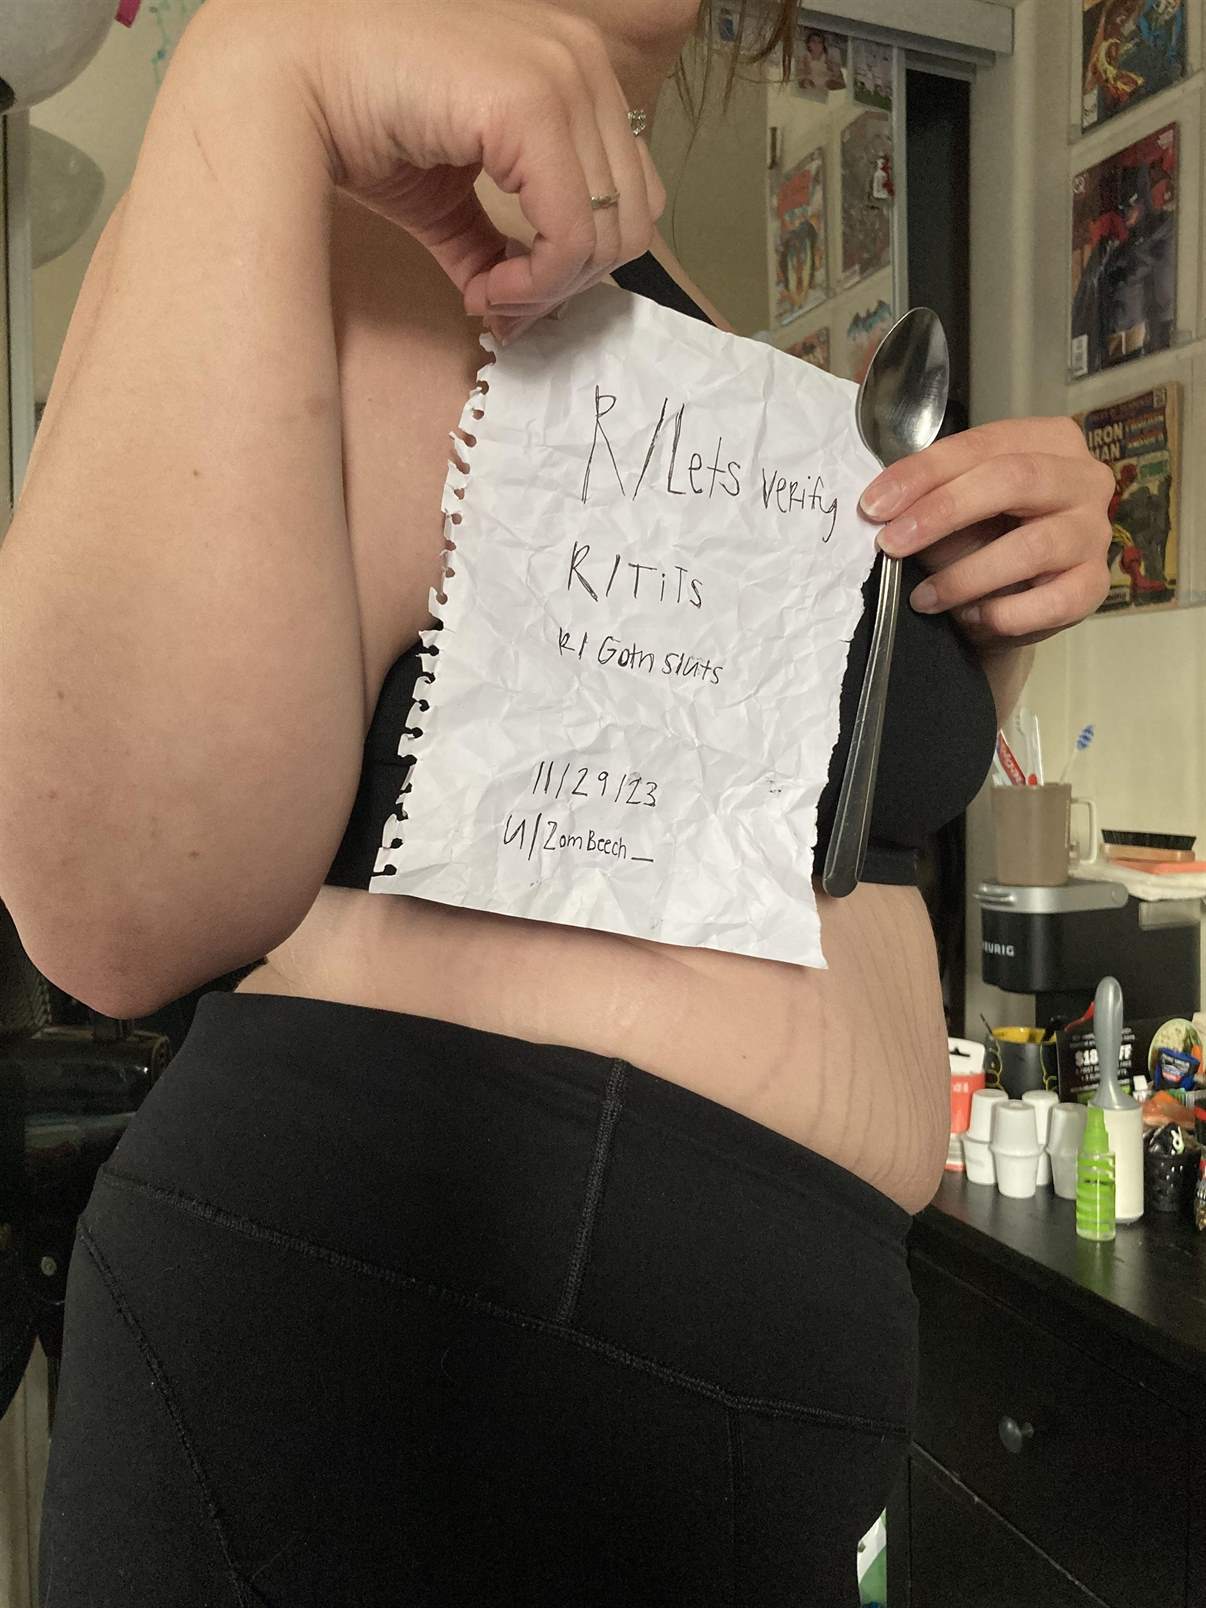 R/Lets verify
R/TiTs
R/Goth sluts
11/29/23
U/ZomBeech_
IRON
MAN
EURIG
$18 FF